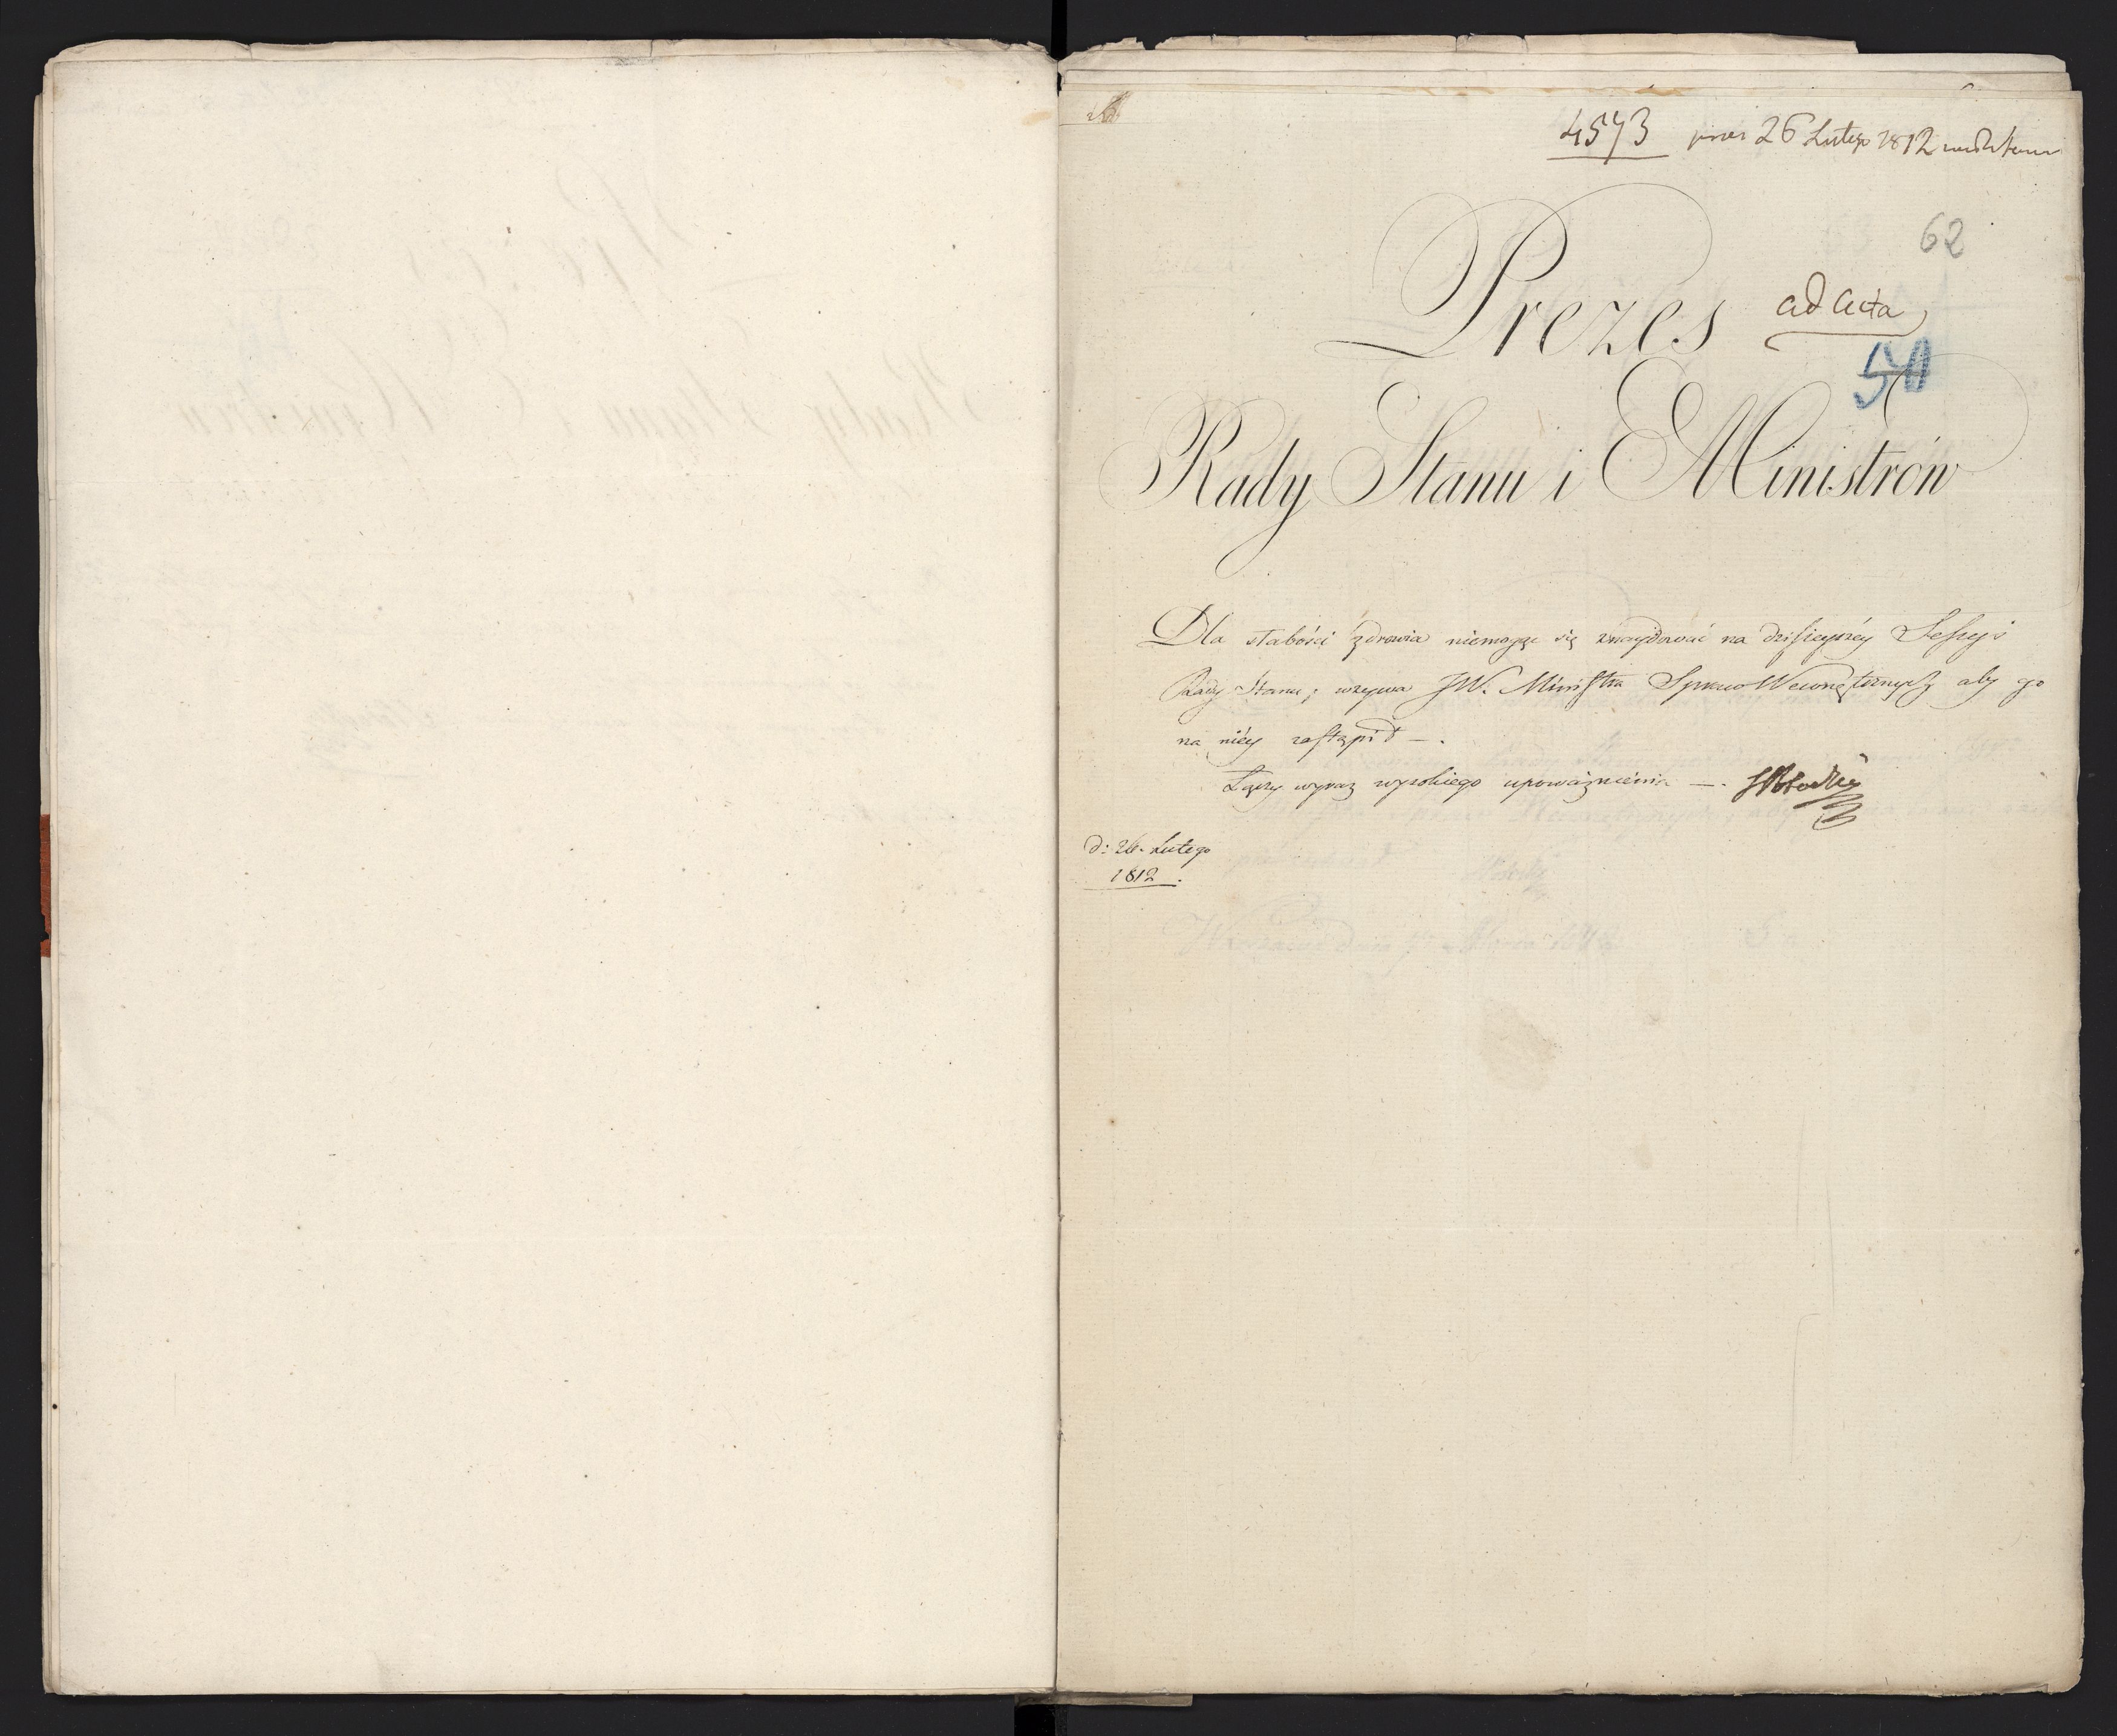 4573 prae 26 Lutego 1812
62
Prezes
ad acta
50
Rady Stanu i Ministrów
Dla słabości zdrowia niemogąc się znaydować na dzisieyszéy Sessyi
Rady Stanu; wzywa JW. Ministra Spraw Wewnętrznych aby go
na niéy zastąpił —.
Łączy wyraz wysokiego upoważnienia —. 
d: 26. Lutego
1812.